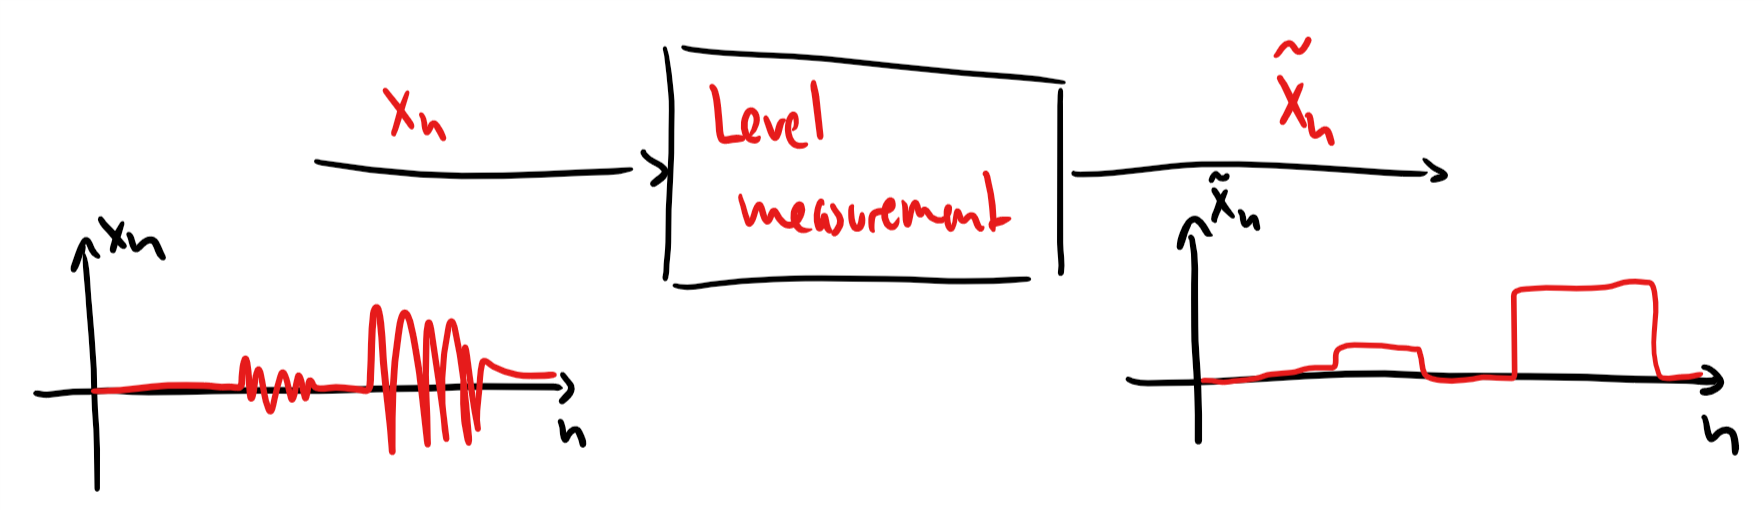 xₙ
Level
measurement
x̃ₙ
xₙ
n
x̃ₙ
n